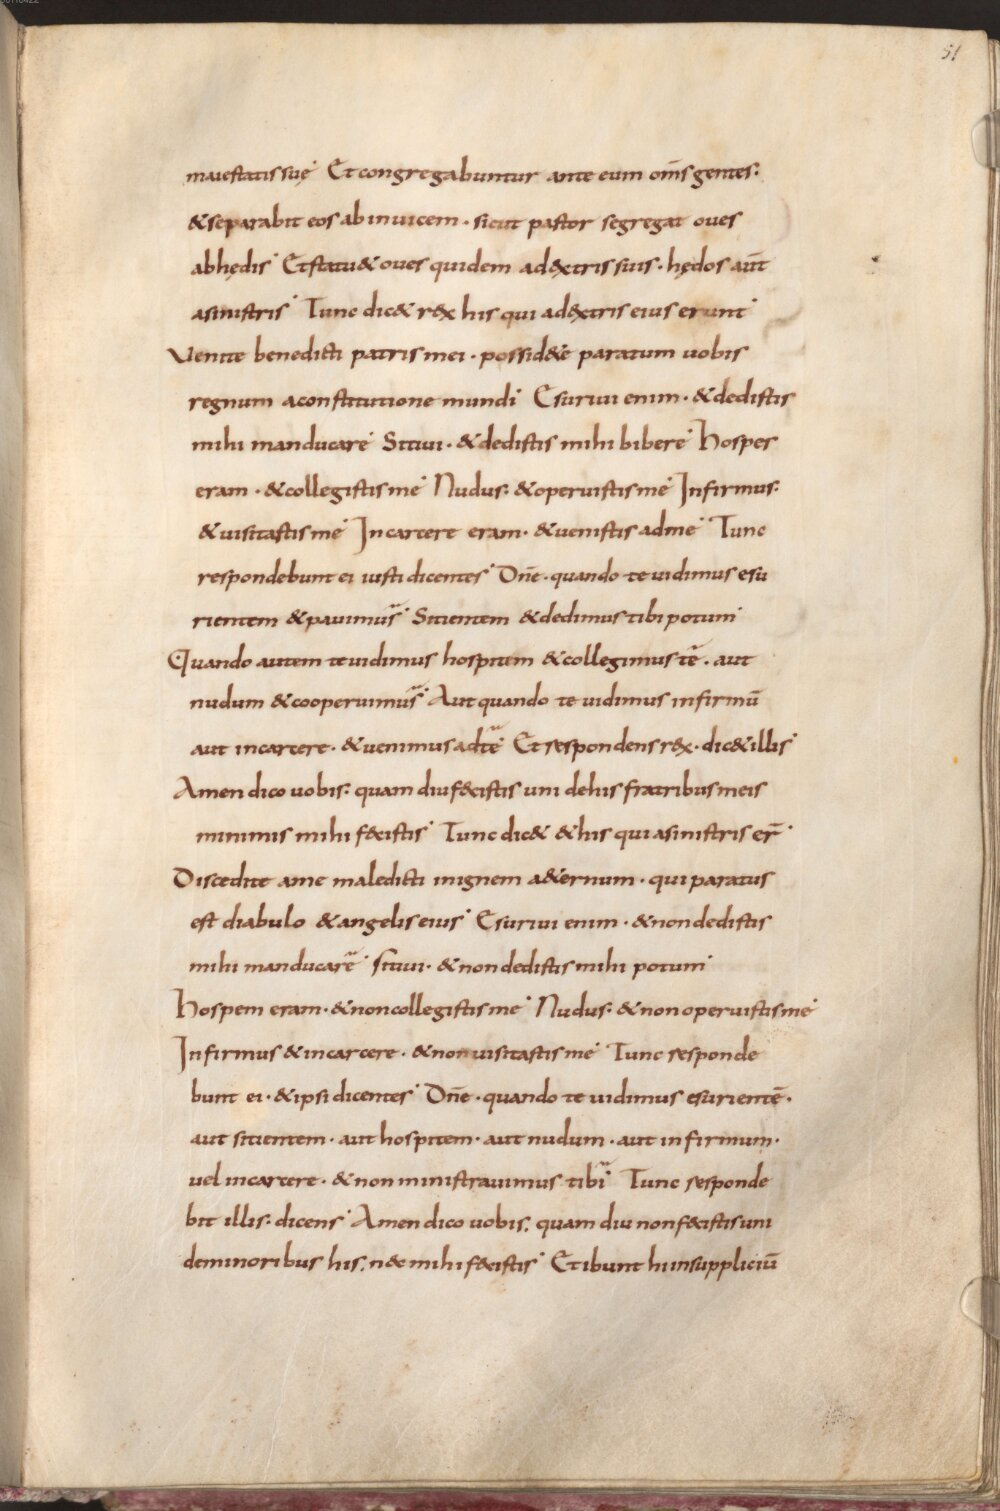 51
maiestatis suę Et congregabuntur ante eum om̅s gentes:
& separabit eos abinuicem · sicut pastor segregat oues
abhędis Et statu& oues quidem adextris suis · hędos aut̅
asinistris Tunc dic& rex his qui adextris eius erunt
Venite benedicti patris mei · possid&e paratum uobis
regnum aconstitutione mundi Esuriui enim · & dedistis
mihi manducare Sitiui · & dedistis mihi bibere Hospes
eram · & collegistis me Nudus: & operuistis me Infirmus:
& uisitastis me Incarcere eram · & uenistis adme Tunc
respondebunt ei iusti dicentes Dn̅e · quando te uidimus esu
rientem & pauimus Sitientem & dedimus tibi potum
Quando autem te uidimus hospitem & collegimus te · aut
nudum & cooperuimus Aut quando te uidimus infirmu̅
aut incarcere · & uenimus adte Et respondens rex · dic& illis
Amen dico uobis: quam diu fecistis uni dehis fratribus meis
minimis mihi fecistis Tunc dic& & his qui asinistris er̅
Discedite ame maledicti inignem a&ernum · qui paratus
est diabulo & angelis eius Esuriui enim · & non dedistis
mihi manducare sitiui · & non dedistis mihi potum
Hospem eram · & non collegistis me Nudus: & non operuistis me
Infirmus & incarcere · & non uisitastis me Tunc responde
bunt ei · & ipsi dicentes Dn̅e · quando te uidimus esuriente̅ ·
aut sitientem · aut hospitem · aut nudum · aut infirmum ·
uel incarcere · & non ministrauimus tibi Tunc responde
bit illis: dicens Amen dico uobis, quam diu non fecistis uni
deminoribus his, nec mihi fecistis Et ibunt hi insuppliciu̅